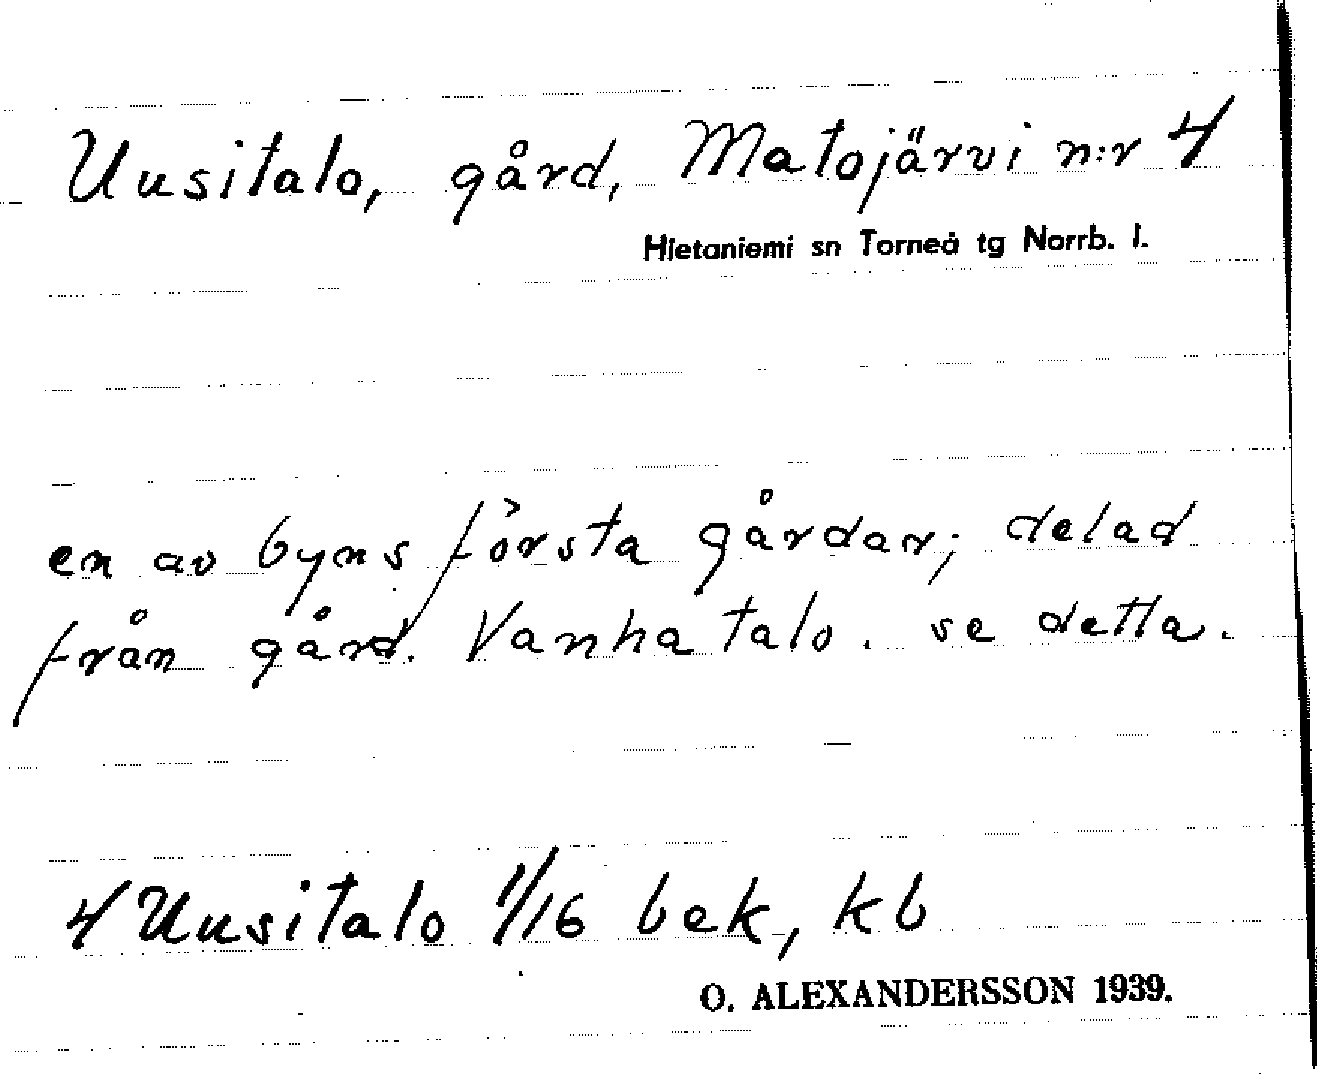 Uusitalo, gård, Matojärvi n:r 4
Hietaniemi sn Torneå tg Norrb. l.
en av byns första gårdar; delad
från gård. Vanha talo. se detta.
4 Uusitalo 1/16 bek, kb
O. ALEXANDERSSON 1939.